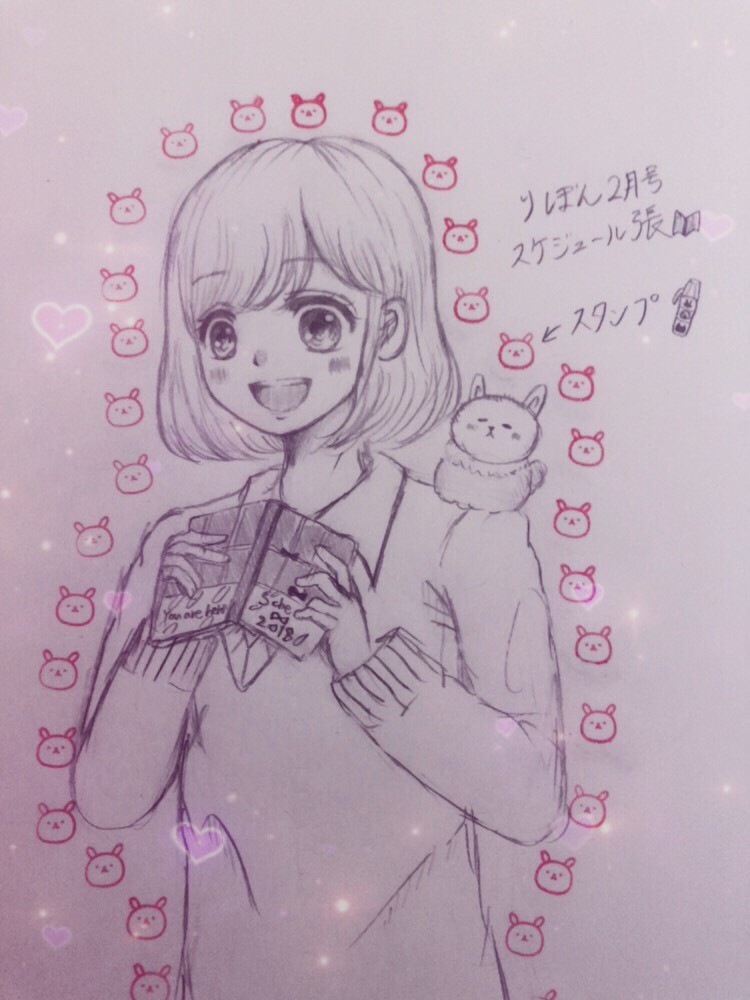 りぼん2月号
スケジュール張
スタンプ
You are here
Sche
2018